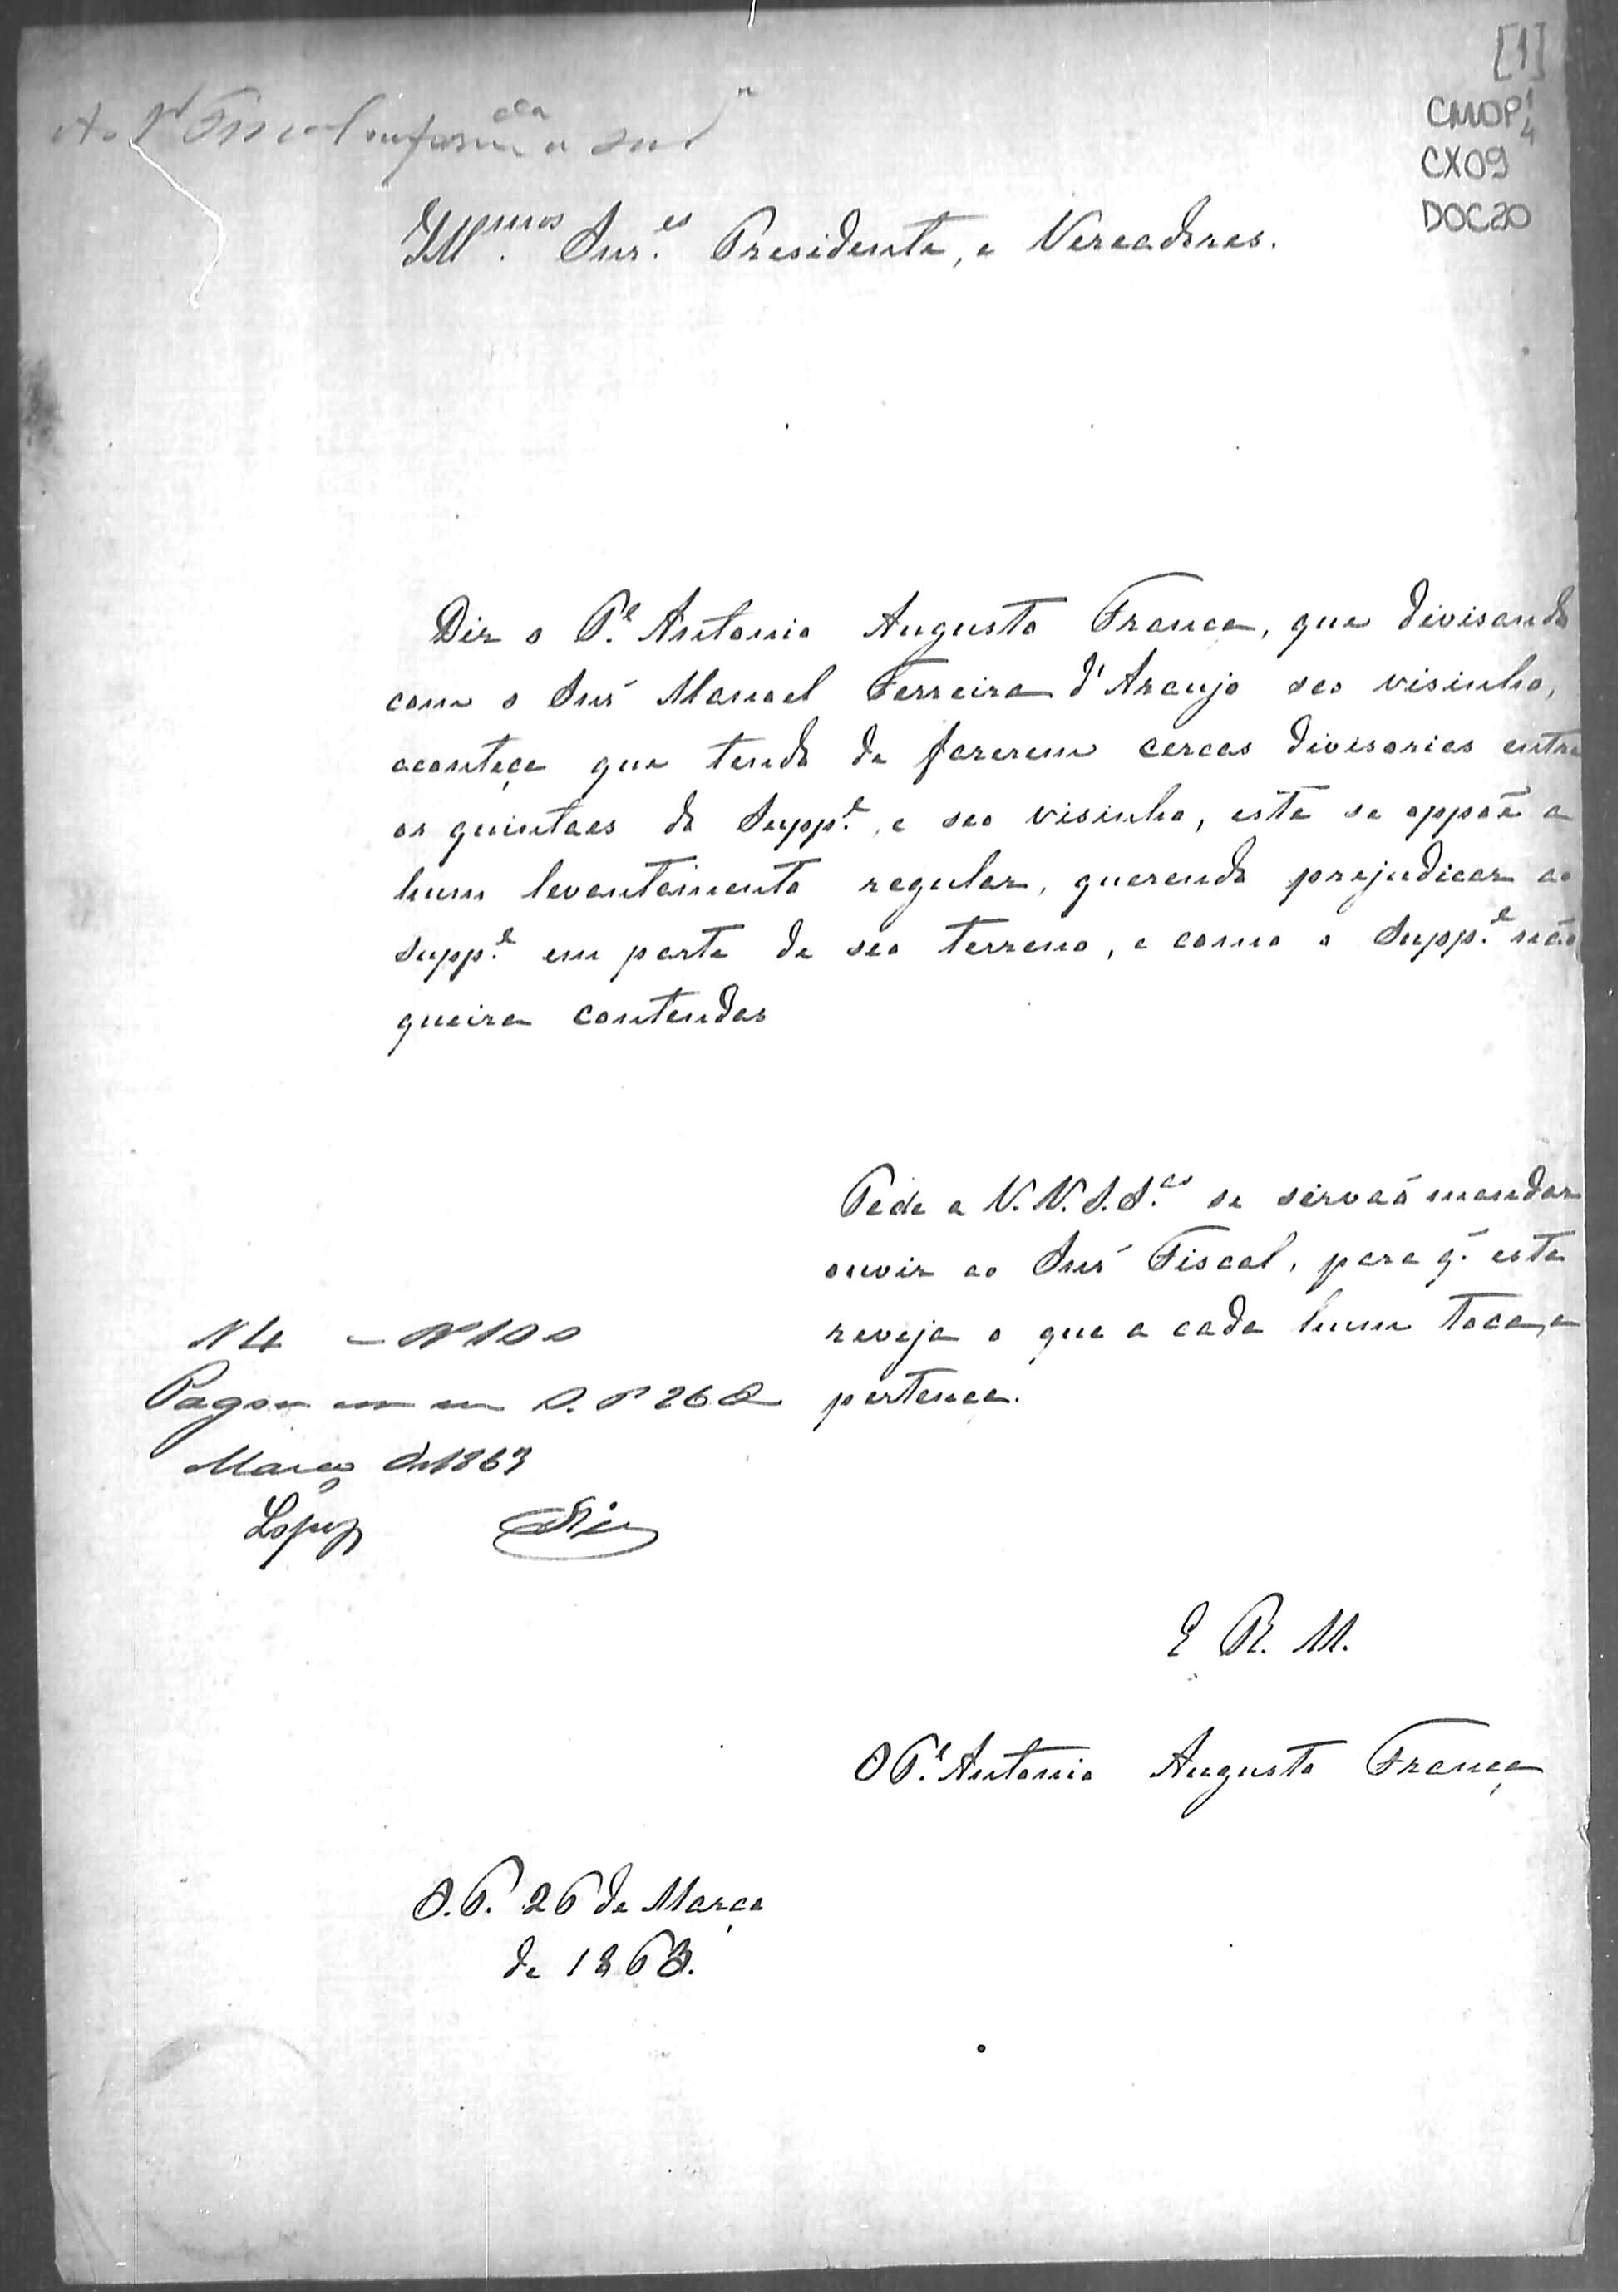 [1]
CMOP 1/4
CX09
DOC20
Ao Fiscal
Ill.mos Snr.es Presidente, e Vereadores.
Diz o P.e Antonio Augusto França, que divisando
com o Snr Manoel Ferreira d'Araujo seo visinho,
aconteçe que tendo de fazerem cercas divisorias entre
os quintaes do Supp.e, e seo visinho, este se oppoẽ a
hum levantamento regular, querendo prejudicar ao
Supp.e em parte de seo terreno, e como o Supp.e não
queira contendas
Pede a V.V.S.S.as se sirvaõ mandar
ouvir ao Snr Fiscal, para q. este
reveja o que a cada hum toca, e
pertence.
N 4 100
Pagou O. P 26 de
Março de 1863
Lopes
E R. M.
O P.e Antonio Augusto França
O. P. 26 de Março
de 1863.